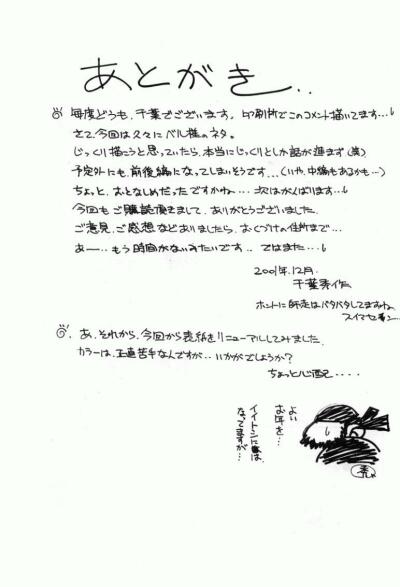 あとがき..
毎度どうも、千葉でございます。印刷所でこのコメント描いてます...
さて、今回は久々にベル様のネタ。
じっくり描こうと思っていたら、本当にじっくりとしか話が進まず(笑)
予定外にも、前後編になってしまいそうです...(いや、中編もあるかも...)
ちょっと、おとなしめだったですかね... 次はがんばります...
今回も、ご購読頂きまして、ありがとうございました。
ご意見、ご感想などありましたら、おくづけの住所まで...
あー...もう時間がないみたいです.. ではまた...
2001年、12月、
千葉秀作
ホントに師走はバタバタしてますねェ
スイマセン...
あ、それから、今回から表紙をリニューアルしてみました
カラーは、正直苦手なんですが...いかがでしょうか?
ちょっと心配....
よい
お年を...
イイトシには、
なってますが...
秀